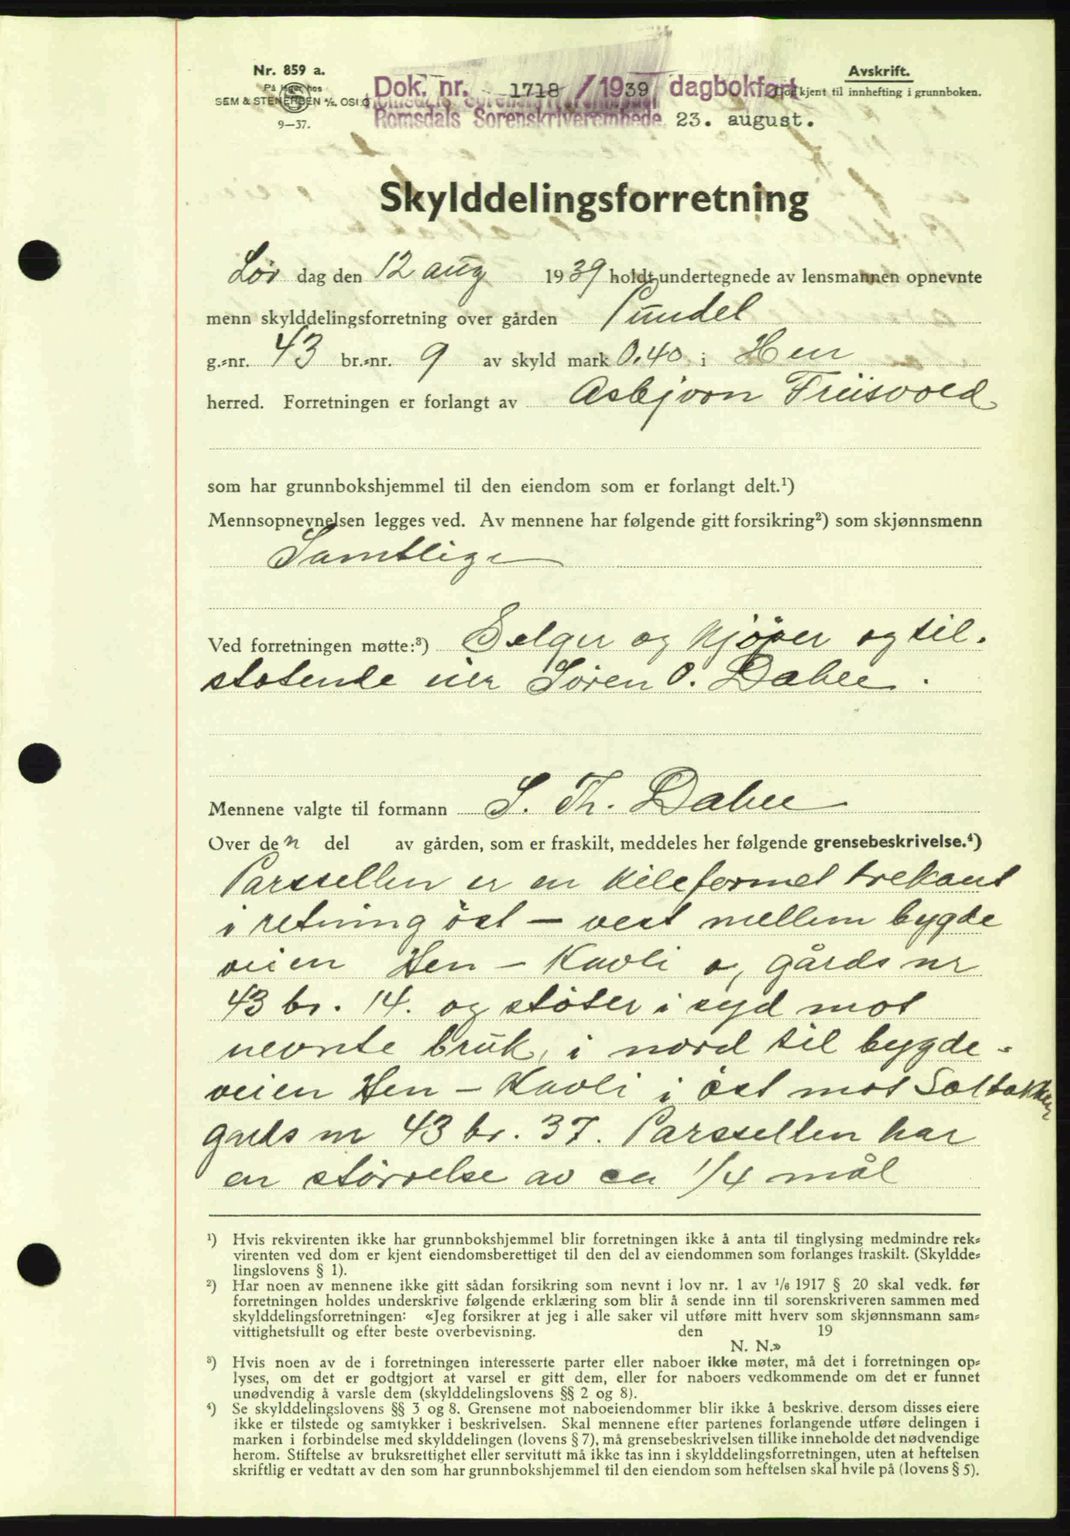 Nr. 859 a.
På lager hos
SEM & STENERSEN A/S, OSLO
9—37.
Dok. nr. 1718 / 1939 dagbokført
Romsdals Sorenskriverembede. 23. august.
Avskrift.
Godkjent til innhefting i grunnboken.
Skylddelingsforretning
Lør dag den 12 aug 1939 holdt undertegnede av lensmannen opnevnte
menn skylddelingsforretning over gården Pundel
g.-nr. 43 br.-nr. 9 av skyld mark 0.40 i Hen
herred. Forretningen er forlangt av Asbjørn Friisvold
som har grunnbokshjemmel til den eiendom som er forlangt delt.¹)
Mennsopnevnelsen legges ved. Av mennene har følgende gitt forsikring²) som skjønnsmenn
Samtlige
Ved forretningen møtte:³) Selger og Kjöper og til-
støtende eier Søren O. Dahle.
Mennene valgte til formann S. Th. Dahle
Over den del av gården, som er fraskilt, meddeles her følgende grensebeskrivelse.⁴)
Parssellen er en kileformet trekant
i retning öst – vest mellem bygde
veien Hen – Kavli o, gårds nr
43 br. 14. og støter i syd mot
nevnte bruk, i nord til bygde-
veien Hen – Kavli i öst mot Solbakken
gards nr 43 br. 37. Parssellen har
en størrelse av ca 1/4 mål
¹) Hvis rekvirenten ikke har grunnbokshjemmel blir forretningen ikke å anta til tinglysing medmindre rek-
virenten ved dom er kjent eiendomsberettiget til den del av eiendommen som forlanges fraskilt. (Skyldde-
lingslovens § 1).
²) Har noen av mennene ikke gitt sådan forsikring som nevnt i lov nr. 1 av ¹/₆ 1917 § 20 skal vedk. før
forretningen holdes underskrive følgende erklæring som blir å sende inn til sorenskriveren sammen med
skylddelingsforretningen: «Jeg forsikrer at jeg i alle saker vil utføre mitt hverv som skjønnsmann sam-
vittighetsfullt og efter beste overbevisning. den 19
N. N.»
³) Hvis noen av de i forretningen interesserte parter eller naboer ikke møter, må det i forretningen op-
lyses, om det er godtgjort at varsel er gitt dem, eller for naboers vedkommende om det er funnet
unødvendig å varsle dem (skylddelingslovens §§ 2 og 8).
⁴) Se skylddelingslovens §§ 3 og 8. Grensene mot naboeiendommer blir ikke å beskrive, dersom disses eiere
ikke er tilstede og samtykker i beskrivelsen. Skal mennene efter partenes forlangende utføre delingen i
marken i forbindelse med skylddelingen (lovens § 7), må grensebeskrivelsen tillike inneholde det nødvendige
herom. Stiftelse av bruksrettighet eller servitutt må ikke tas inn i skylddelingsforretningen, uten at heftelsen
skriftlig er vedtatt av den som har grunnbokshjemmel til den eiendom som heftelsen skal hvile på (lovens § 5).